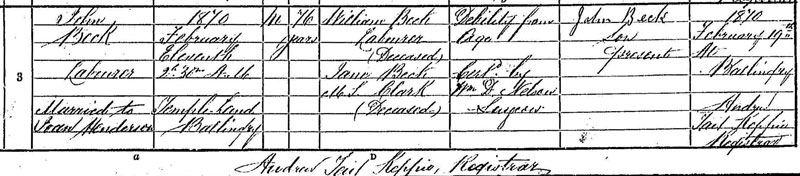 3
John
Beck
Labourer
Married to
Joan Henderson
1870
February
Eleventh
2h 30m A.M.
Templeland
Ballingry
M
76
years
William Beck
Labourer
(Deceased)
Jane Beck
M.S. Clark
(Deceased)
Debility from
Age
Certd by
Wm D. Nelson
Surgeon
John Beck
Son
present
1870
February 19th
At
Ballingry
Andw
Tait Keppie
Registrar
a
b
Andrew Tait Keppie, Registrar